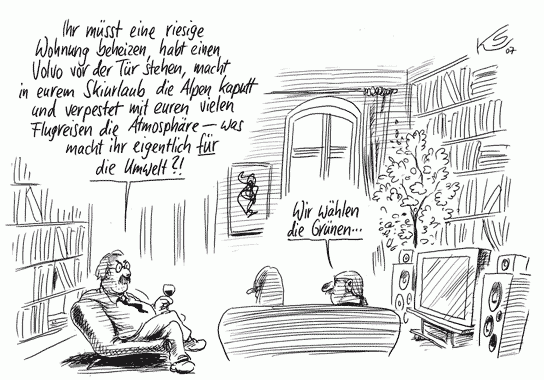 Ihr müsst eine riesige
Wohnung beheizen, habt einen
Volvo vor der Tür stehen, macht
in eurem Skiurlaub die Alpen kaputt
und verpestet mit euren vielen
Flugreisen die Atmosphäre – was
macht ihr eigentlich für
die Umwelt?!
Wir wählen
die Grünen...
KS
07